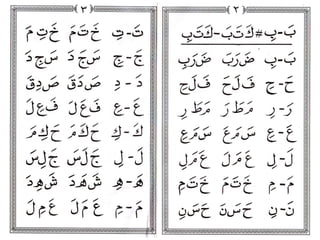 ٢
بَ-بِ # كَتَبَ-كَتَبِ
بَ-بِ ضَرَبَ ضَرَبِ
حَ-حِ فَلَحَ فَلَحِ
رَ-رِ مَطَرَ مَطَرِ
عَ-عِ سَمَعَ سَمَعِ
لَ-لِ عَمَلَ عَمَلِ
مَ-مِ خَتَمَ خَتَمِ
نَ-نِ حَسَنَ حَسَنِ
٣
تَ-تِ خَتَمَ خَتِمَ
جَ-جِ سَجَدَ سَجِدَ
دَ-دِ صَدَقَ صَدِقَ
عَ-عِ فَعَلَ فَعِلَ
كَ-كِ حَكَمَ حَكِمَ
لَ-لِ جَلَسَ جَلِسَ
هَ-هِ شَهَدَ شَهِدَ
مَ-مِ عَمَلَ عَمِلَ